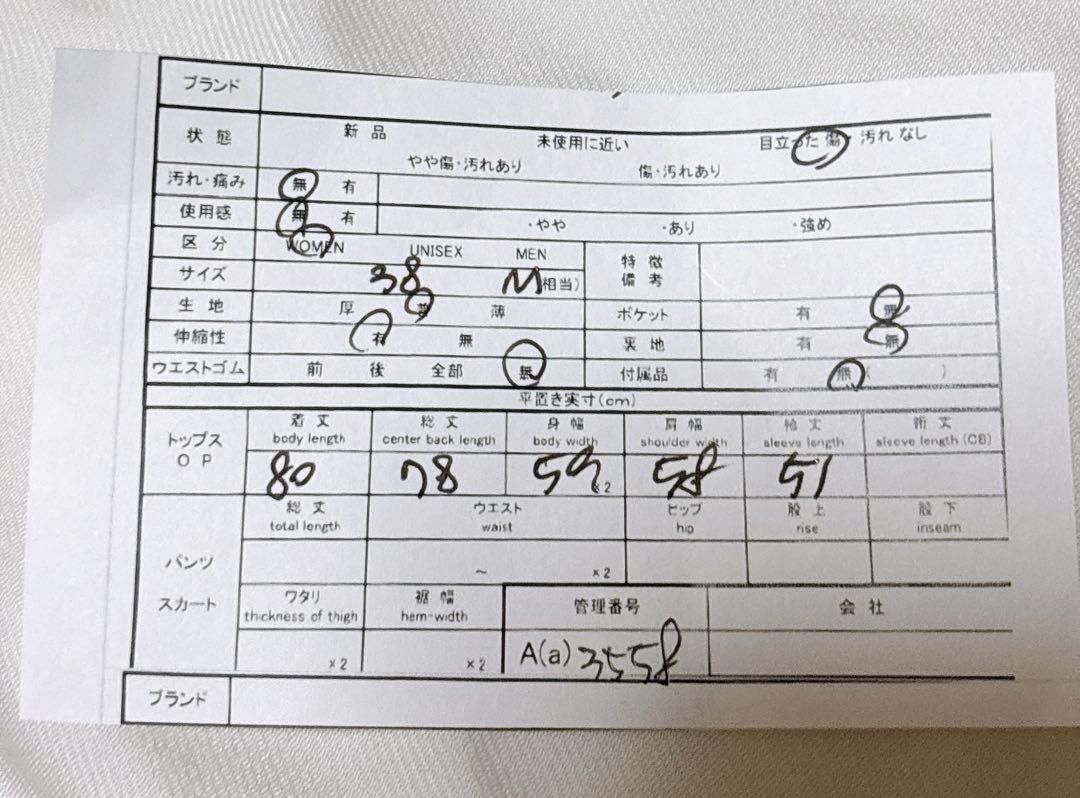 ブランド
状態 新品 未使用に近い 目立った傷 汚れなし
やや傷・汚れあり 傷・汚れあり
汚れ・痛み 無 有
使用感 無 有 ・やや ・あり ・強め
区分 WOMEN UNISEX MEN 特徴
備考
サイズ 38 M 相当)
生地 厚 普 薄 ポケット 有 無
伸縮性 有 無 裏地 有 無
ウエストゴム 前 後 全部 無 付属品 有 無( )
平置き実寸(cm)
トップス
OP
着丈 総丈 身幅 肩幅 袖丈 裄丈
body length center back length body width shoulder width sleeve length sleeve length (CB)
80 78 59 ×2 58 51
総丈 ウエスト ヒップ 股上 股下
total length waist hip rise inseam
パンツ
~ ×2
スカート
ワタリ 裾幅 管理番号 会社
thickness of thigh hem-width
×2 ×2 A(a) 3558
ブランド